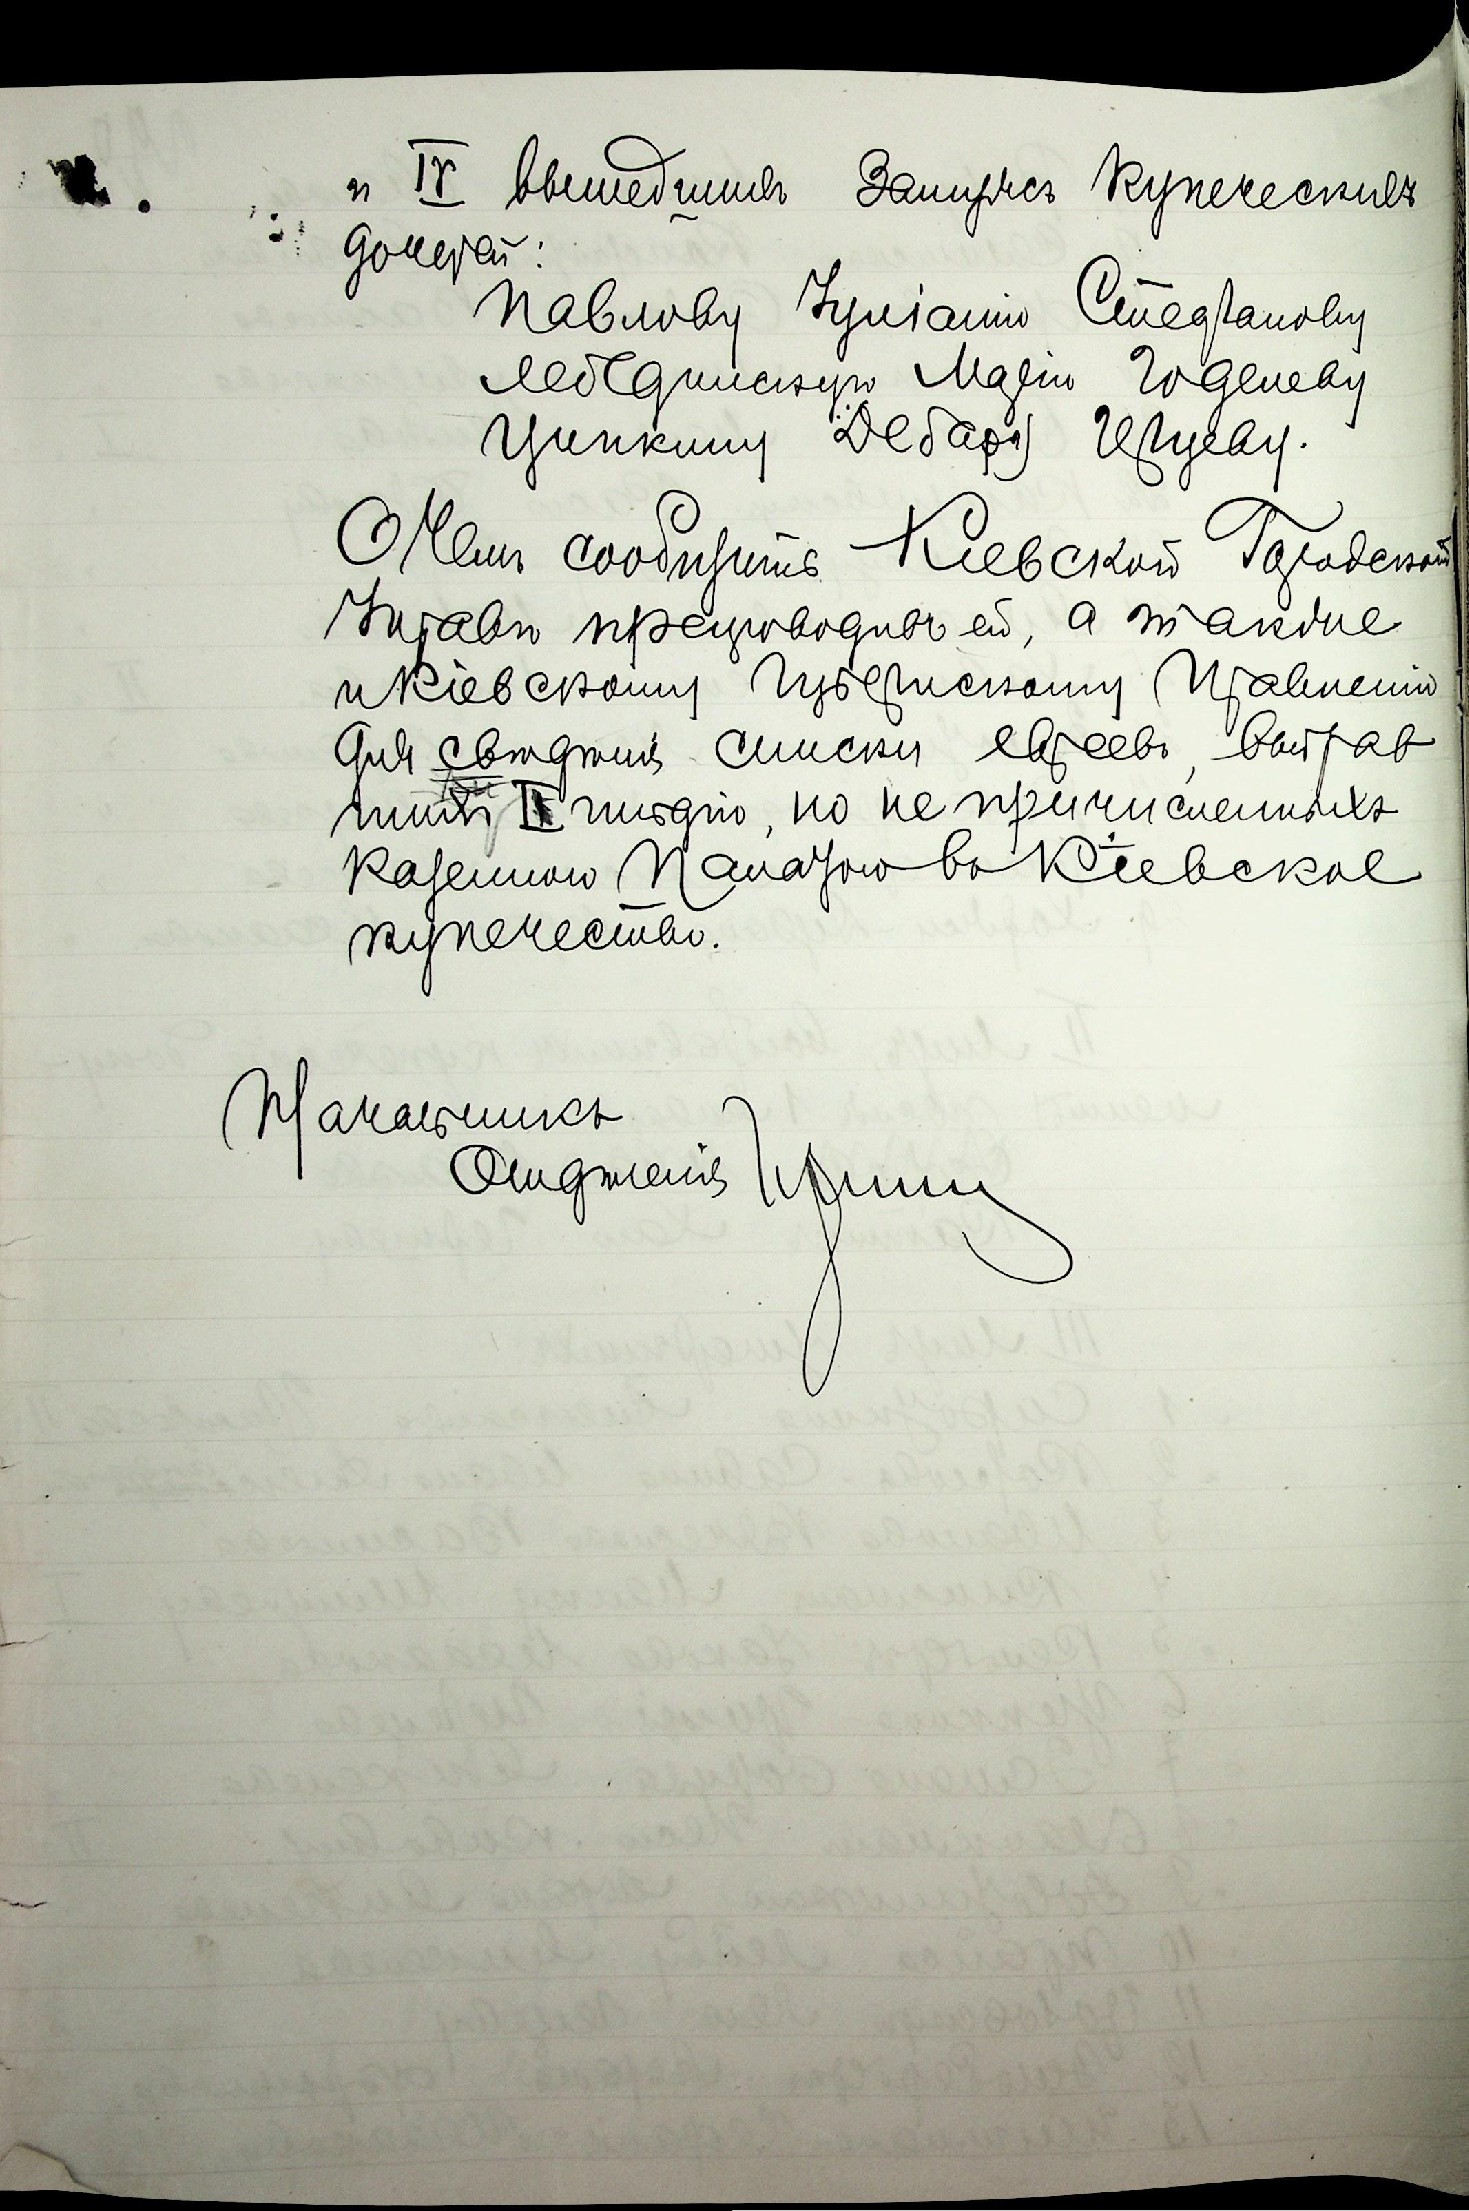 и IV вышедшихъ замужъ купеческихъ
дочерей:
Павлову Іуліанію Стефанову
Лебединскую Марію Годелеву
Ципкину Дебору Герцеву.
О чемъ сообщить Кіевской Городской
Управѣ препроводивъ ей, а также
и Кіевскому Губернскому Правленію
для свѣдѣнія списки евреевъ, выбрав
шихъ II гильдію, но не причисленныхъ
Казенною Палатою въ Кіевское
купечество.
Начальникъ
Отдѣленія